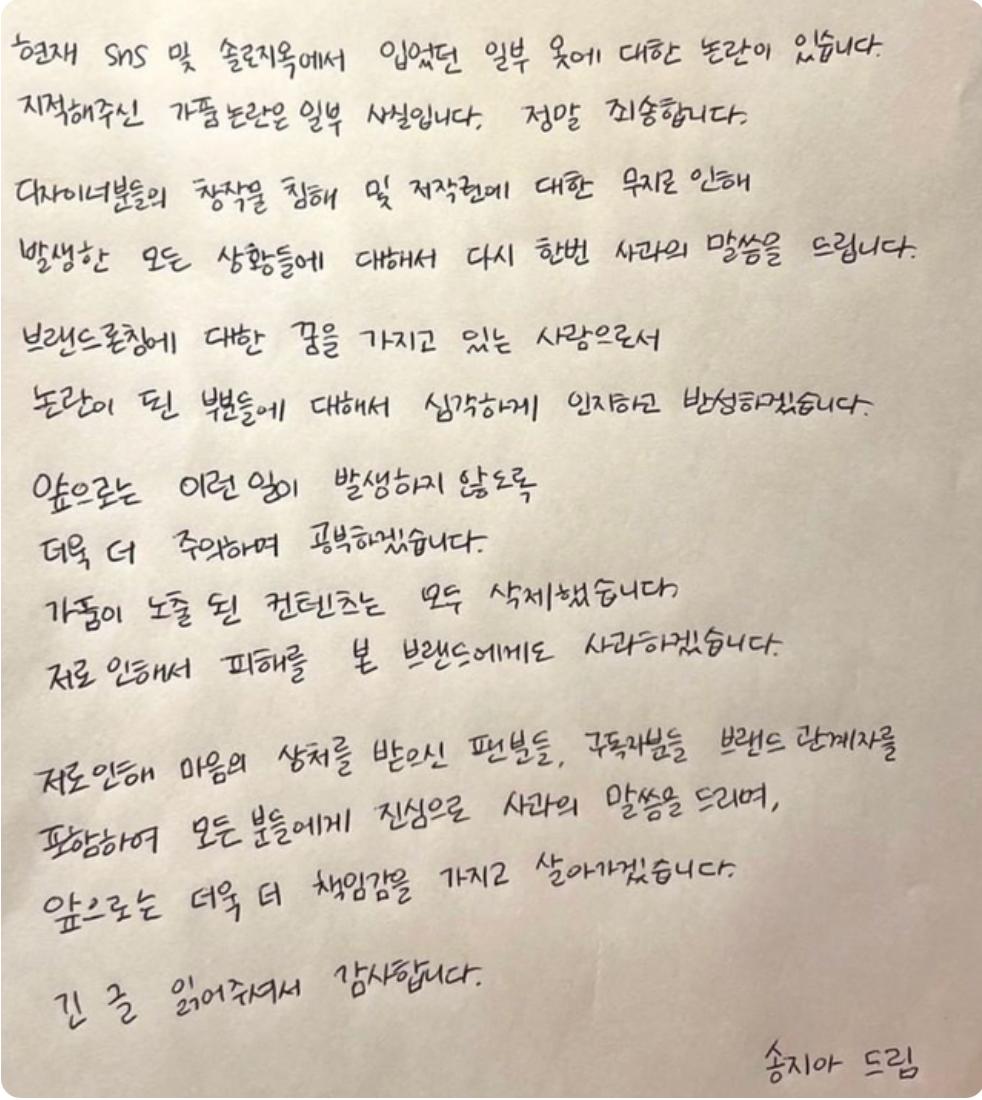 현재 SNS 및 솔로지옥에서 입었던 일부 옷에 대한 논란이 있습니다.
지적해주신 가품논란은 일부 사실입니다. 정말 죄송합니다.
디자이너분들의 창작물 침해 및 저작권에 대한 무지로 인해
발생한 모든 상황들에 대해서 다시 한번 사과의 말씀을 드립니다.
브랜드론칭에 대한 꿈을 가지고 있는 사람으로서
논란이 된 부분들에 대해서 심각하게 인지하고 반성하겠습니다.
앞으로는 이런 일이 발생하지 않도록
더욱 더 주의하며 공부하겠습니다.
가품이 노출 된 컨텐츠는 모두 삭제했습니다.
저로 인해서 피해를 본 브랜드에게도 사과하겠습니다.
저로인해 마음의 상처를 받으신 팬분들, 구독자분들 브랜드 관계자를
포함하여 모든 분들에게 진심으로 사과의 말씀을 드리며,
앞으로는 더욱 더 책임감을 가지고 살아가겠습니다.
긴 글 읽어주셔서 감사합니다.
송지아 드림